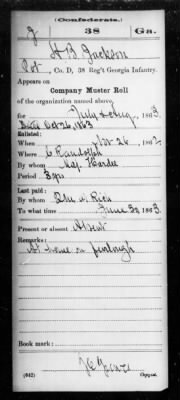 (Confederate.)
J 38 Ga.
H B Jackson
Pvt, Co. D, 38 Reg't Georgia Infantry.
Appears on
Company Muster Roll
of the organization named above,
for July & Aug, 1863.
Dated Oct 26, 1863
Enlisted:
When 1862
Where C Randolph
By whom Maj. Hardee
Period 3 yrs
Last paid:
By whom
To what time June 30, 1863.
Present or absent Absent
Remarks:
At home on furlough
Book mark:
(642) Copyist.